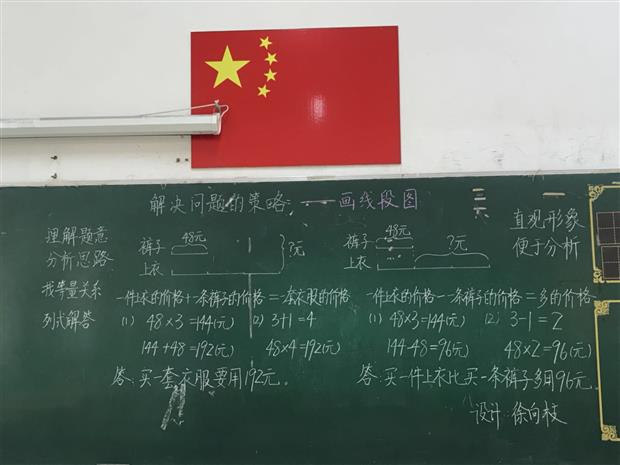 解决问题的策略——画线段图
理解题意
分析思路
找等量关系
列式解答
裤子 48元
上衣
?元
一件上衣的价格+一条裤子的价格=一套衣服的价格
(1) 48×3=144(元) (2) 3+1=4
144+48=192(元) 48×4=192(元)
答:买一套衣服要用192元。
裤子 48元
上衣 ?元
一件上衣的价格-一条裤子的价格=多的价格
(1) 48×3=144(元) (2) 3-1=2
144-48=96(元) 48×2=96(元)
答:买一件上衣比买一条裤子多用96元。
直观形象
便于分析
设计:徐向枝